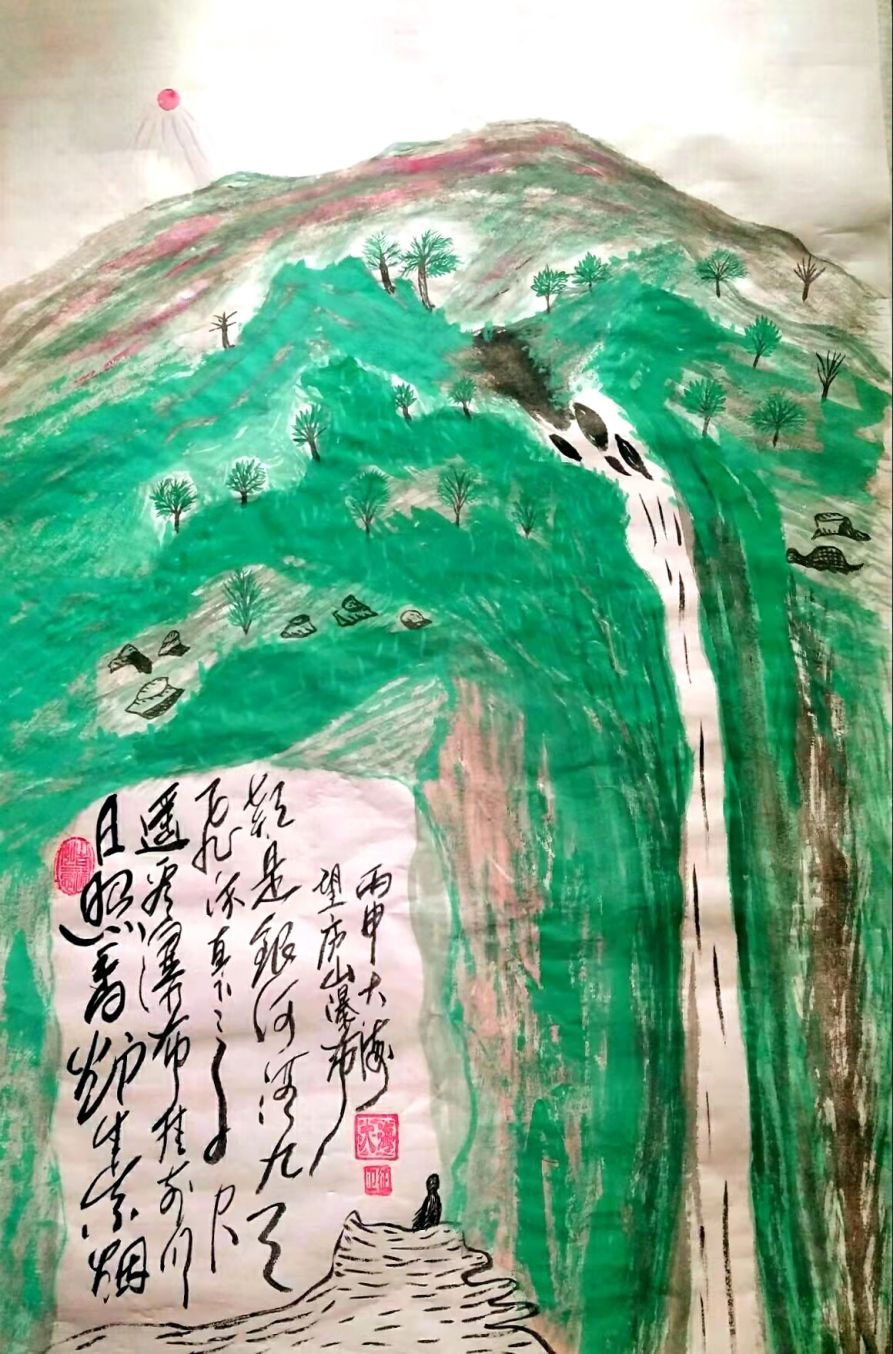 日照香炉生紫烟
遥看瀑布挂前川
飛流直下三千尺
疑是銀河落九天
望庐山瀑布
丙申大海